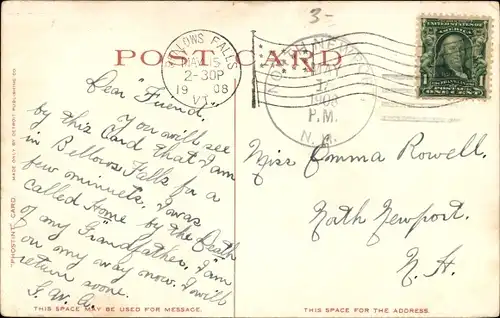 3-
POST CARD
BELLOWS FALLS
MAY 15
2-30P
1908
VT.
MAY
1908
P.M.
N.H.
1
POSTAGE
ONE CENT
Dear "Friend."
You will see
by this Card that I am
in Bellows Falls for a
few minuets. I was
called Home by the Death
of my Grandfather. I "am
on my way now. I will
return soone.
Miss Emma Rowell.
North Newport.
N. H.
"PHOSTINT" CARD. MADE ONLY BY DETROIT PUBLISHING CO.
THIS SPACE MAY BE USED FOR MESSAGE.
THIS SPACE FOR THE ADDRESS.